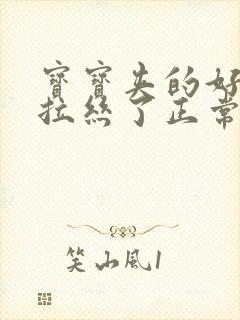 寶寶夹的好
拉絲了正常
笑山風1